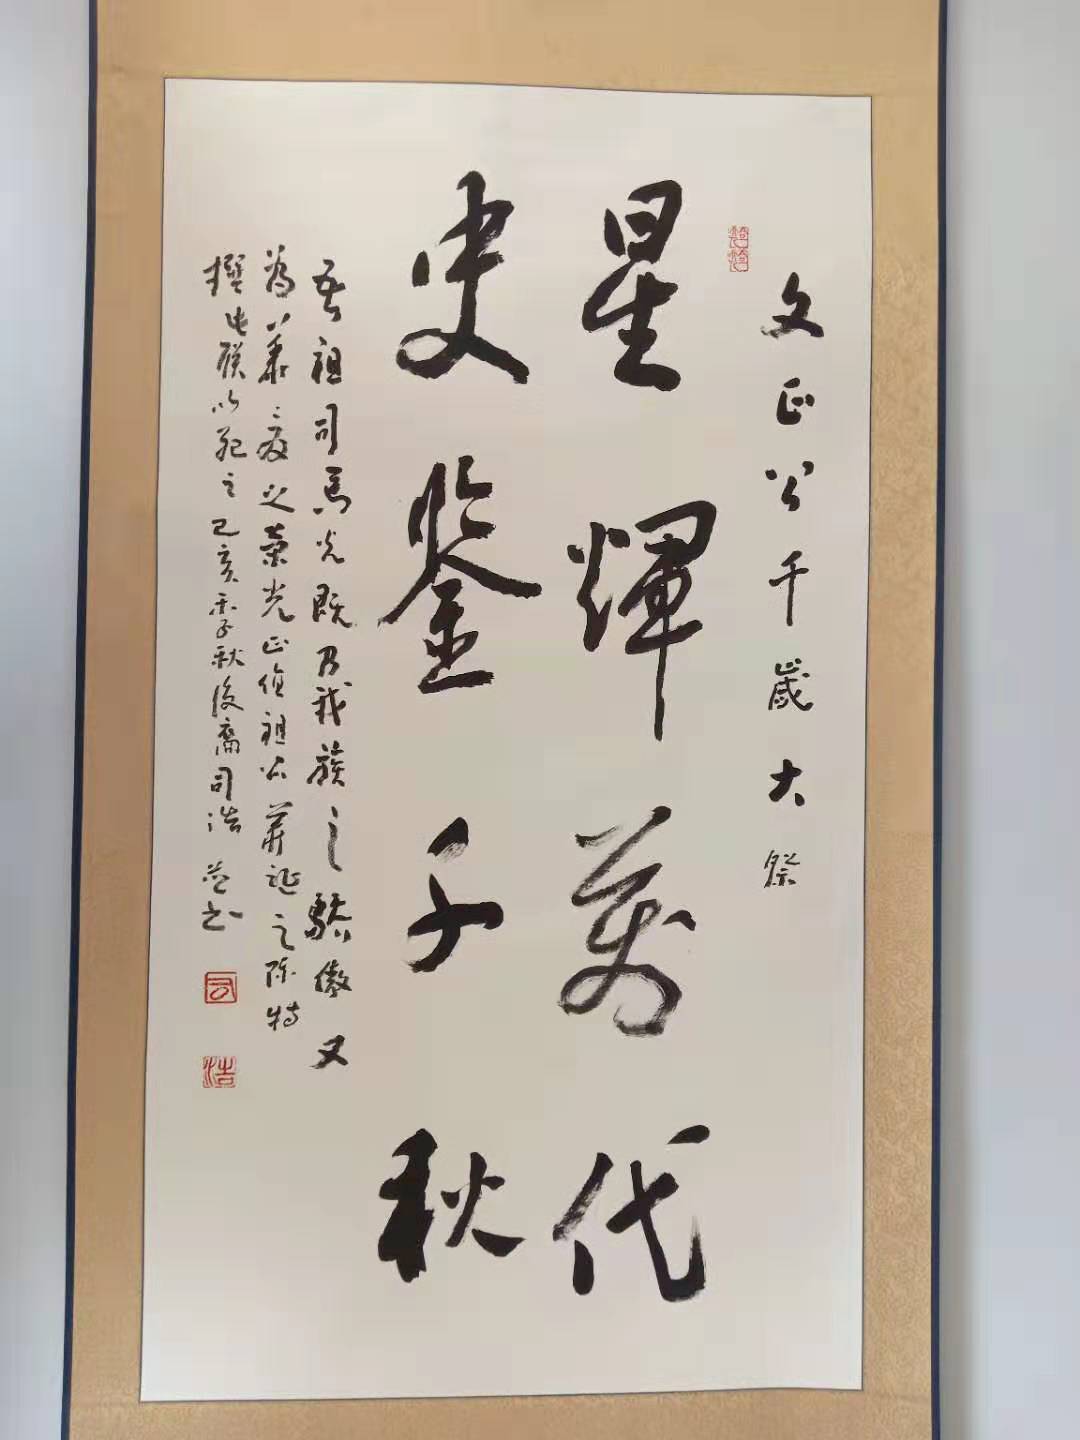 文正公千歲大祭
星輝萬代
史鉴千秋
吾祖司馬光既乃我族之驕傲又
為華夏之榮光正值祖公華誕之际特
撰此联以祀之己亥季秋後裔司浩並书
司
浩